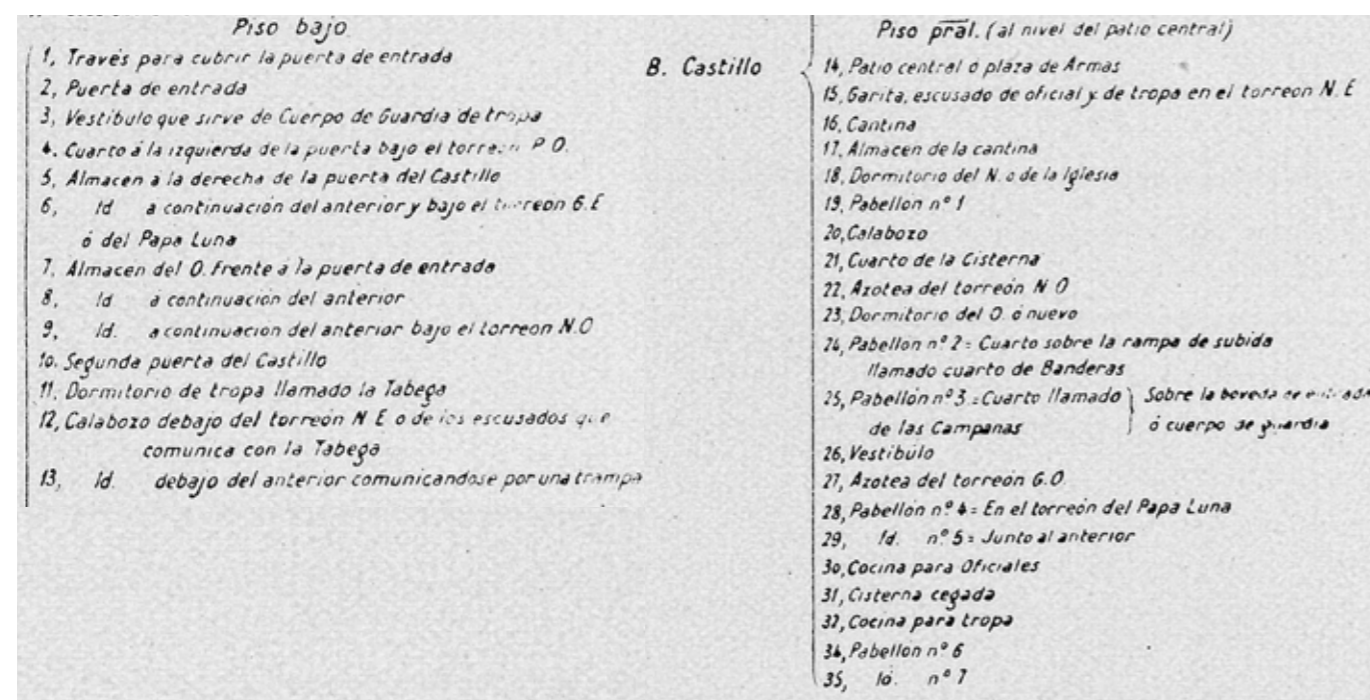 Piso bajo
1, Través para cubrir la puerta de entrada
2, Puerta de entrada
3, Vestibulo que sirve de Cuerpo de Guardia de tropa
4. Cuarto á la izquierda de la puerta bajo el torreon P O.
5, Almacen a la derecha de la puerta del Castillo
6, Id a continuación del anterior y bajo el torreon G.E
ó del Papa Luna
7, Almacen del O. frente á la puerta de entrada
8, Id á continuación del anterior
9, Id. a continuación del anterior bajo el torreon N.O
10. Segunda puerta del Castillo
11, Dormitorio de tropa llamado la Tabega
12, Calabozo debajo del torreón N E o de los escusados que
comunica con la Tabega
13, Id. debajo del anterior comunicandose por una trampa
B. Castillo
Piso pral. (al nivel del patio central)
14, Patio central ó plaza de Armas
15, Garita, escusado de oficial y de tropa en el torreon N.E
16, Cantina
17, Almacen de la cantina
18, Dormitorio del N. o de la Iglesia
19, Pabellon nº 1
20, Calabozo
21, Cuarto de la Cisterna
22, Azotea del torreón N O
23, Dormitorio del O. ó nuevo
24, Pabellon nº 2 = Cuarto sobre la rampa de subida
llamado cuarto de Banderas
25, Pabellón nº 3 = Cuarto llamado
de las Campanas
Sobre la boveda de entrada
ó cuerpo de guardia
26, Vestibulo
27, Azotea del torreón G.O.
28, Pabellón nº 4 = En el torreón del Papa Luna
29, Id. nº 5 = Junto al anterior
30, Cocina para Oficiales
31, Cisterna cegada
32, Cocina para tropa
34, Pabellon nº 6
35, Id. nº 7